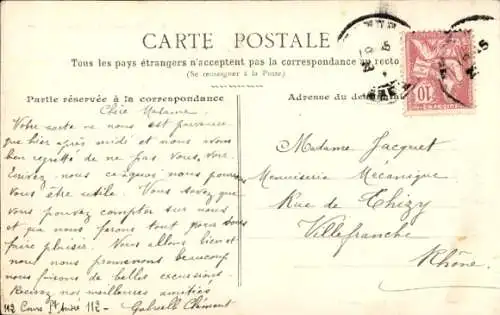 CARTE POSTALE
Tous les pays étrangers n'acceptent pas la correspondance au recto
(Se renseigner à la Poste)
Partie réservée à la correspondance
Adresse du
Chère Madame,
Votre carte ne nous est parvenue
que hier après midi et nous avons
bien regretté de ne pas vous voir.
Ecrivez nous ce quoi nous pouvons
vous être utile. Vous savez que
vous pouvez compter sur nous
et que nous ferons tout pour vous
faire plaisir. Nous allons bien et
nous nous promenons beaucoup
nous faisons de belles excursions.
Recevez nos meilleures amitiés
Gabrielle Clément
112 Cours St André 112 -
Madame Jacquet
Menuiserie Mécanique
Rue de Thizy
Villefranche
Rhône
10